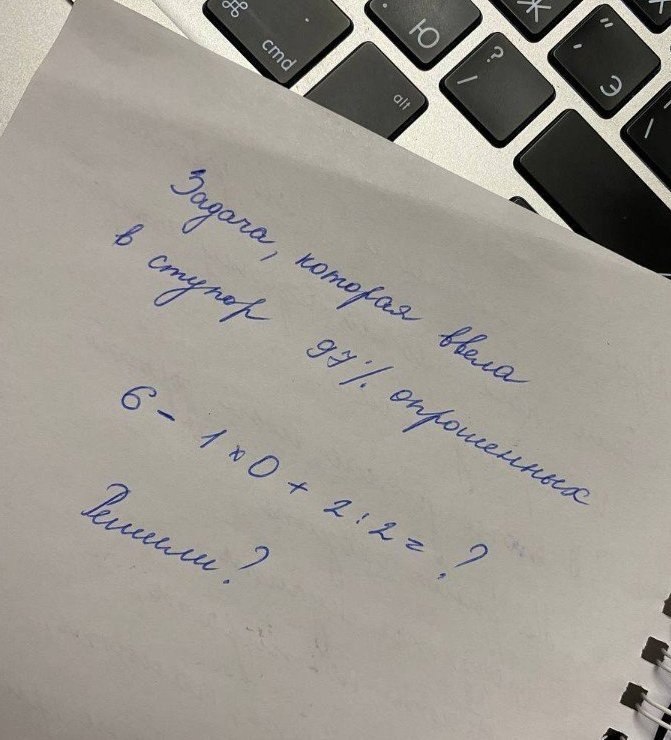 cmd
alt
Ю
Ж
?
/
"
'
Э
Задача, которая ввела
в ступор 97% опрошенных
6 - 1 × 0 + 2 : 2 = ?
Решили?